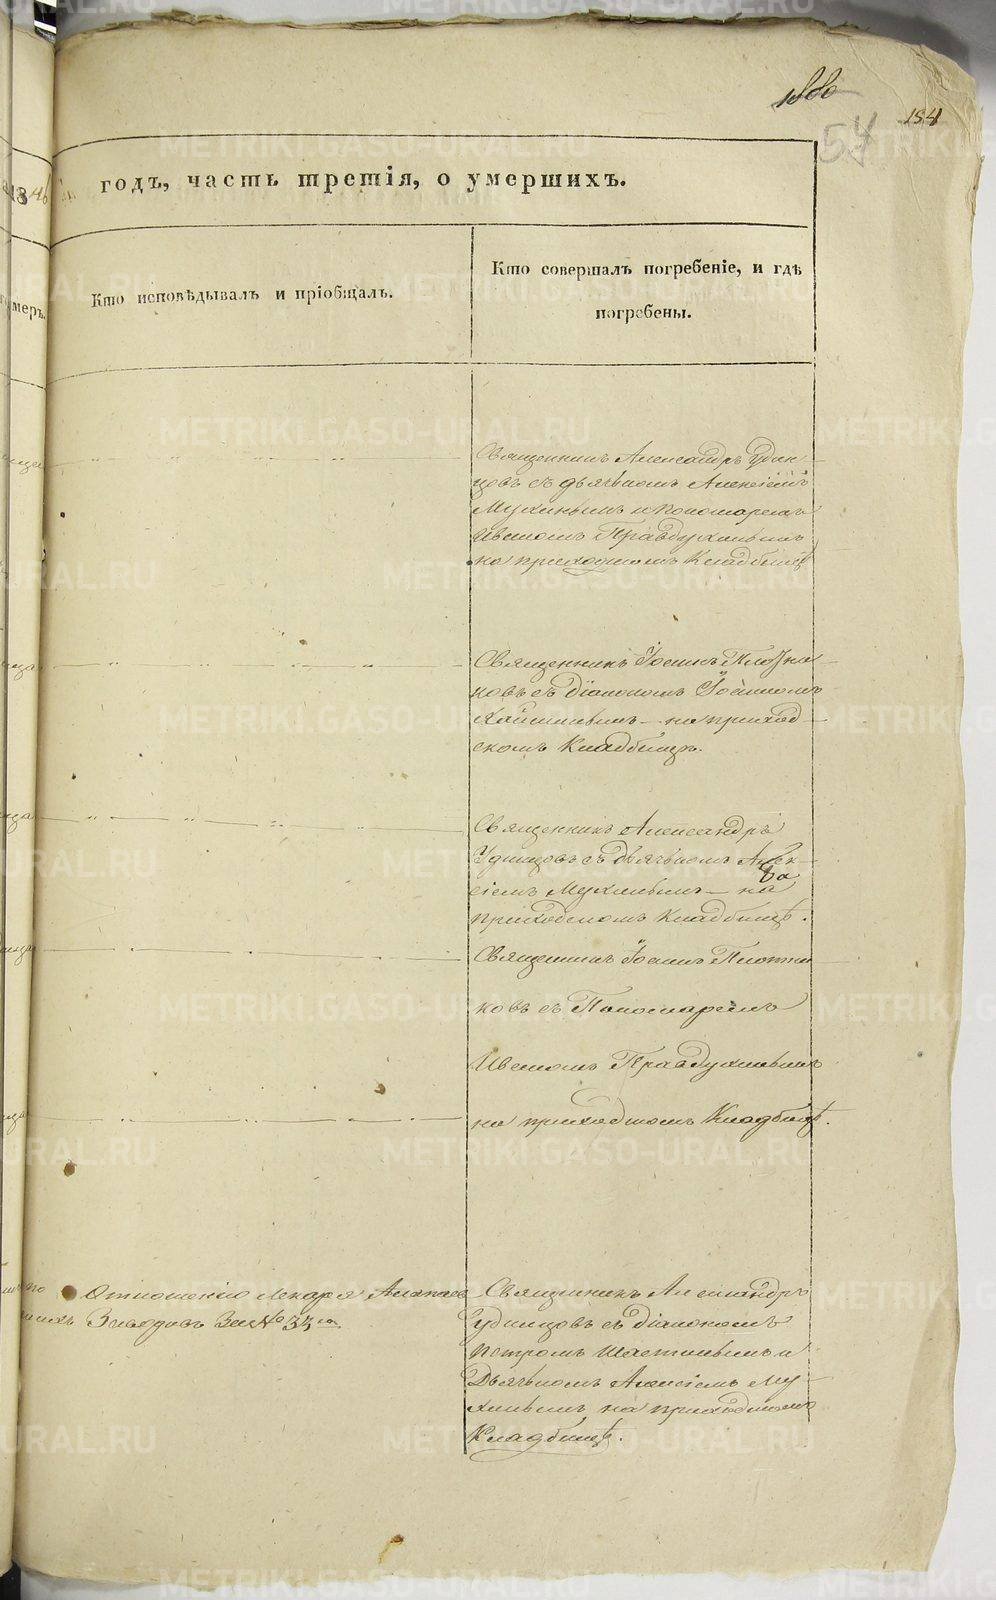 154
54
1846
годъ, часть третія, о умершихъ.
меръ.
Кто исповѣдывалъ и пріобщалъ.
Кто совершалъ погребеніе, и гдѣ
погребены.
Священникъ Александръ Удин-
цовъ съ дьячкомъ Алексіемъ
Мухинымъ и Пономаремъ
Иваномъ Правдухинымъ
на приходскомъ Кладбищѣ
Священникъ Іоаннъ Плотни
ковъ съ діакономъ Іоанномъ
на приход-
скомъ Кладбищѣ.
Священникъ Александръ
Удинцовъ съ дьячкомъ Алек-
сіемъ Мухинымъ – на
приходскомъ кладбищѣ.
Священникъ Іоаннъ Плотни
ковъ съ Пономаремъ
Иваномъ Правдухинымъ
на приходскомъ Кладбищѣ.
Отношеніе Лекаря Алапаев
Заводовъ За № 33м
Священникъ Александръ
Удинцовъ съ діакономъ
Петромъ и
Дьячкомъ Алексіемъ Му-
хинымъ на приходскомъ
Кладбищѣ.
METRIKI.GASO-URAL.RU